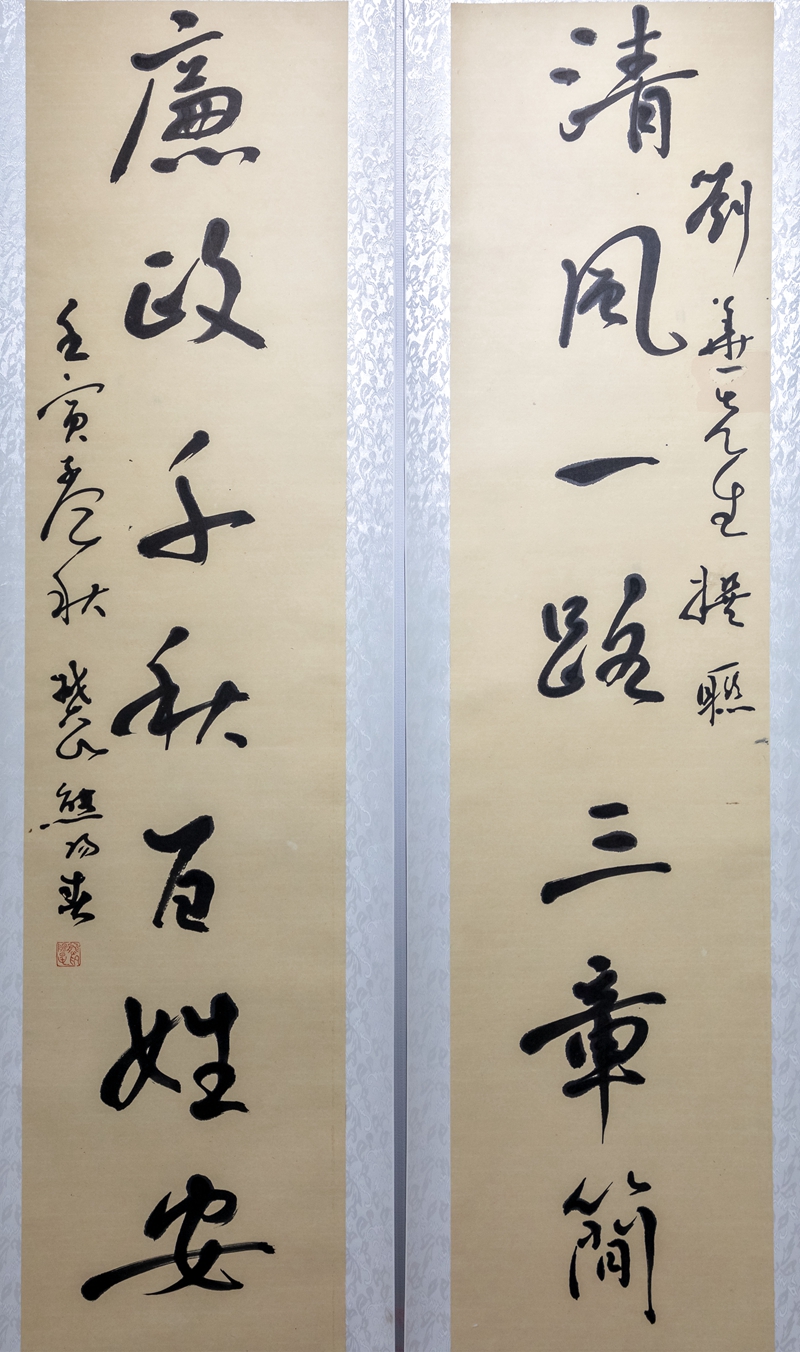 清風一路三章簡
劉華先生撰聯
廉政千秋百姓安
壬寅春秋
熊陽春